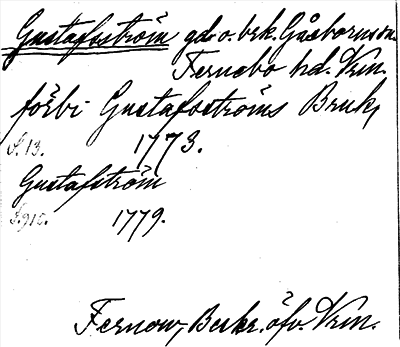 Gustafsström gd. o. brk. Gåsborns sn.
Fernebo hd. Vrm.
förbi Gustafsströms Bruk,
S. 13. 1773.
Gustafström
S. 915. 1779.
Fernow, Beskr. öfv. Vrm.